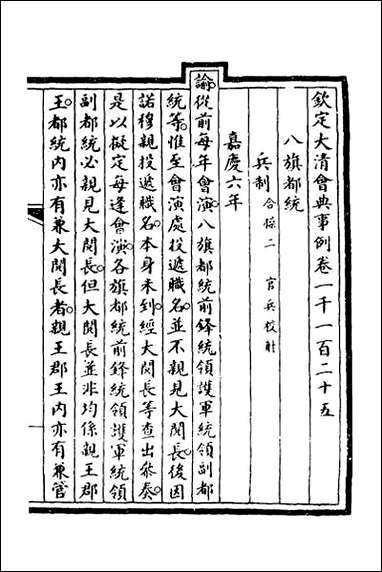 欽定大清會典事例卷一千一百二十五
八旗都統
兵制 合操二 官兵校射
嘉慶六年
諭從前每年會演八旗都統前鋒統領護軍統領副都
統等惟至會演處投遞職名並不親見大閱長後因
諾穆親投遞職名本身未到經大閱長等查出參奏
是以擬定每逢會演各旗都統前鋒統領護軍統領
副都統必親見大閱長但大閱長並非均係親王郡
王都統內亦有兼大閱長者親王郡王內亦有兼管